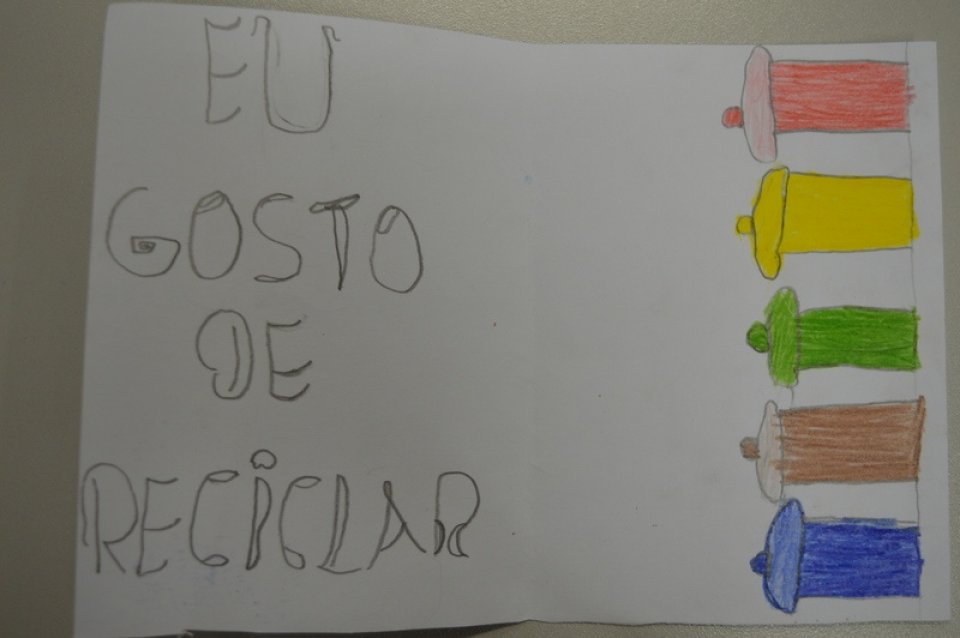 EU
GOSTO
DE
RECiCLAR